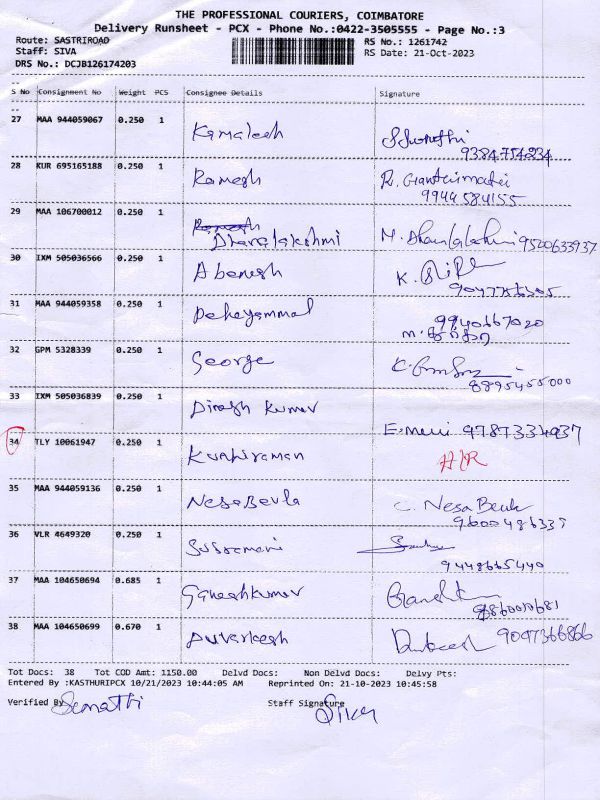 THE PROFESSIONAL COURIERS, COIMBATORE
Delivery Runsheet - PCX - Phone No.:0422-3505555 - Page No.:3
Route: SASTRIROAD RS No.: 1261742
Staff: SIVA RS Date: 21-Oct-2023
DRS No.: DCJB126174203
S No Consignment No Weight PCS Consignee Details Signature
27 MAA 944059067 0.250 1 Kamalesh
9384754234
28 KUR 695165188 0.250 1 Ramesh R.
9944584155
29 MAA 106700012 0.250 1 Ramesh
Dhanalakshmi M. Dhanalakshmi 9500633937
30 IXM 505036566 0.250 1 K.
31 MAA 944059358 0.250 1 9940667020
32 GPM 5328339 0.250 1 George
8895455000
33 IXM 505036839 0.250 1 Dinesh Kumar
E. 9787334937
34 TLY 10061947 0.250 1 Kunhiraman
35 MAA 944059136 0.250 1 C. Nesa
36 VLR 4649320 0.250 1
9448665440
37 MAA 104650694 0.685 1 Ganeshkumar
38 MAA 104650699 0.670 1 9047366866
Tot Docs: 38 Tot COD Amt: 1150.00 Delvd Docs: Non Delvd Docs: Delvy Pts:
Entered By :KASTHURIPCX 10/21/2023 10:44:05 AM Reprinted On: 21-10-2023 10:45:58
Verified By Staff Signature
Siva